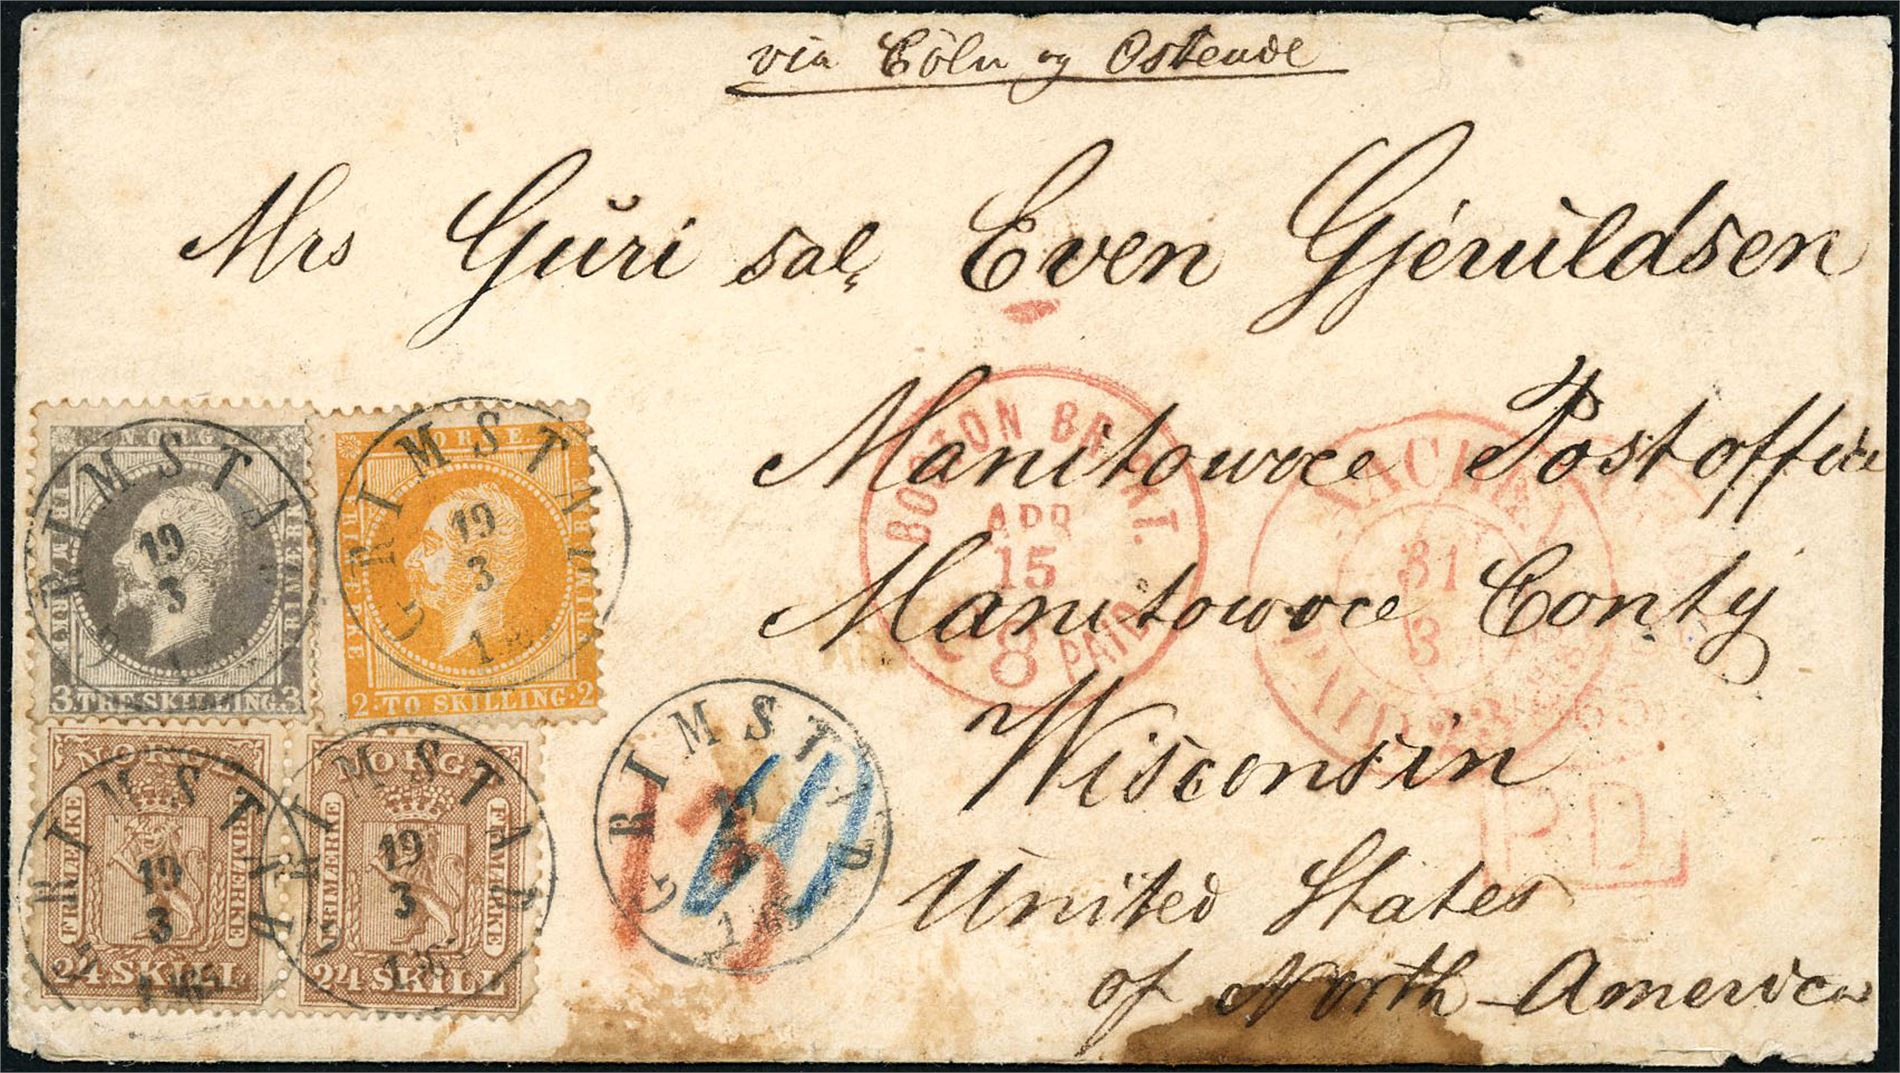 via Cöln og Ostende
Mrs Guri sal. Even Gjeruldsen
Manitowoce Postoffice
Manitowoce Conty
Wisconsin
United States
of North America
BOSTON BR. PKT.
APR
15
8
PAID
AACHEN
31
3
PAID 23
P.D.
NORGE
FRIMÆRKE
FRIMÆRKE
3 TRE SKILLING 3
NORGE
FRIMÆRKE
FRIMÆRKE
2 TO SKILLING 2
NORGE
FRIMÆRKE
FRIMÆRKE
24 SKILL
NORGE
FRIMÆRKE
FRIMÆRKE
24 SKILL
GRIMSTAD
19
3
GRIMSTAD
19
3
GRIMSTAD
19
3
GRIMSTAD
19
3
GRIMSTAD